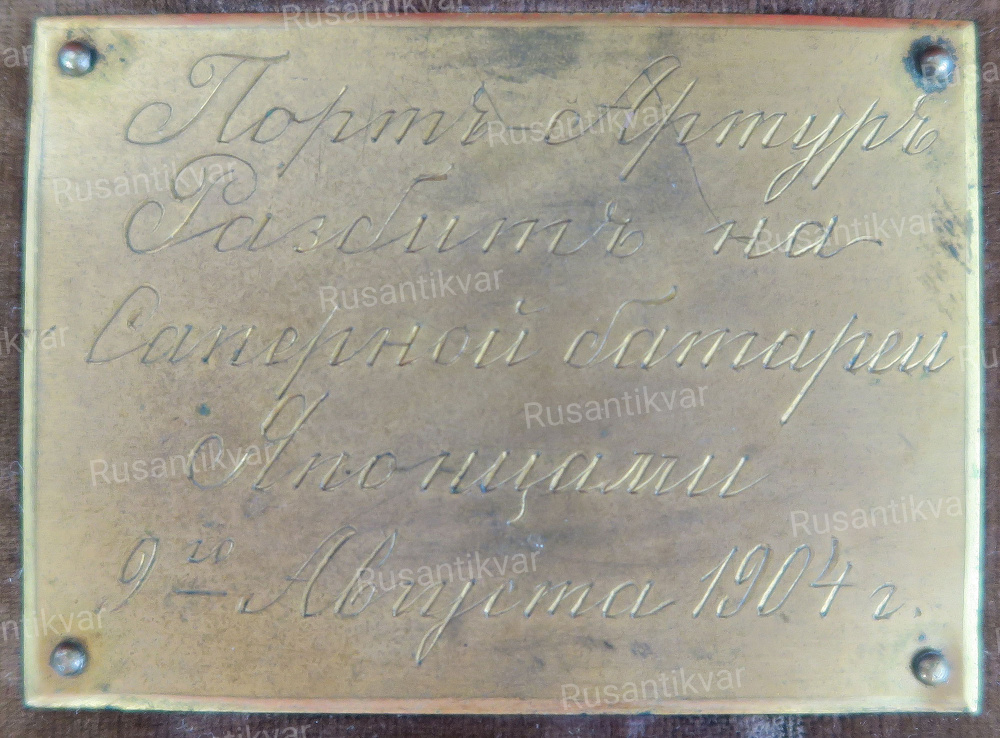 Портъ Артуръ
Разбитъ на
Саперной батареи
Японцами
9го Августа 1904 г.